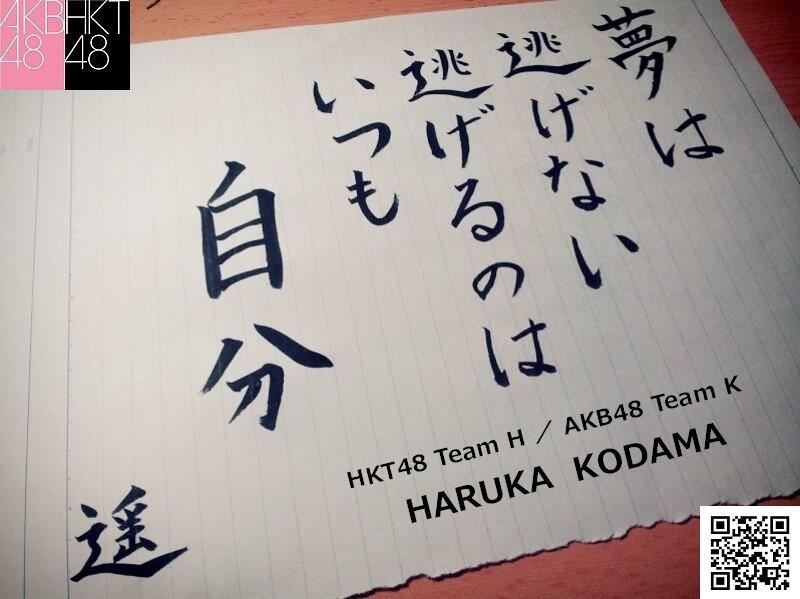 AKB
48
HKT
48
夢は
逃げない
逃げるのは
いつも
自分
遥
HKT48 Team H / AKB48 Team K
HARUKA KODAMA